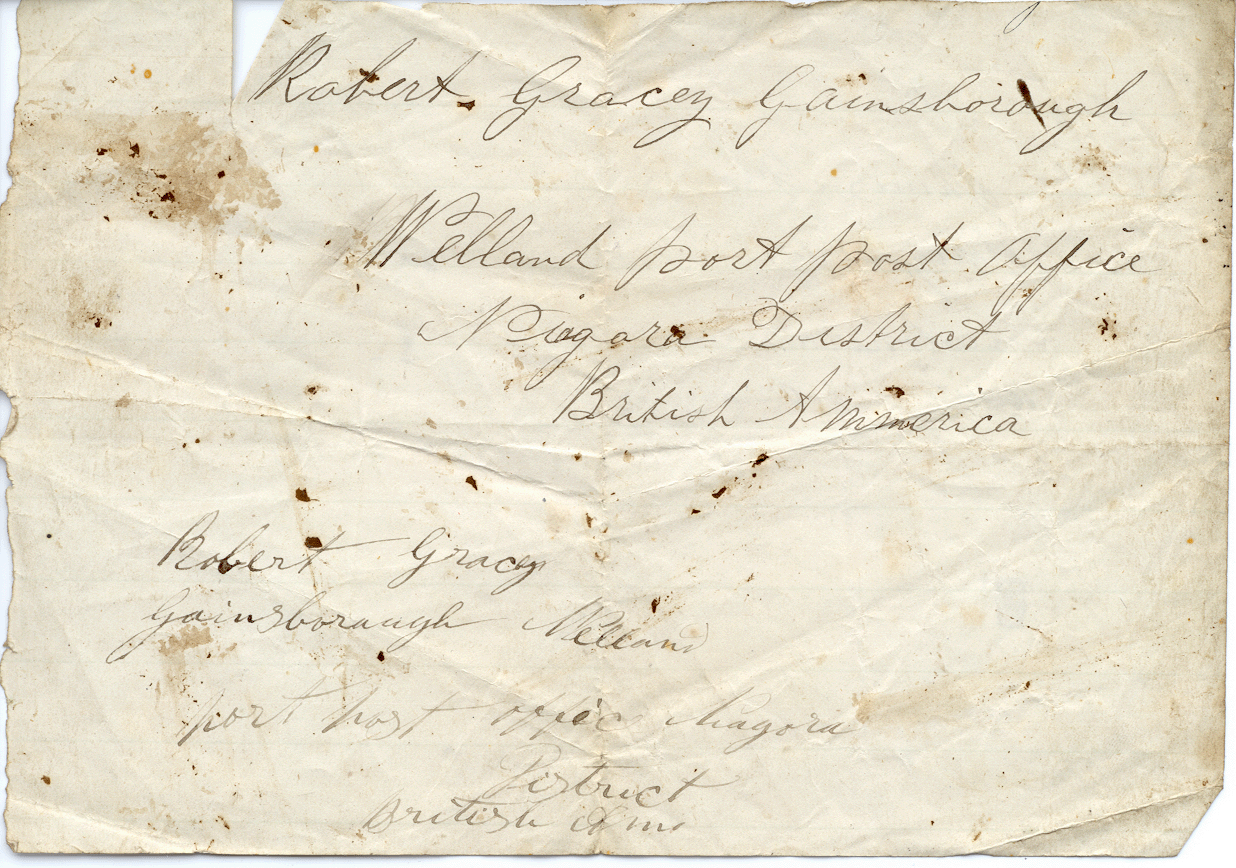 Robert Gracey Gainsborough
Welland port post office
Niagara District
British Ammerica
Robert Gracey
Gainsboraugh Welland
port post offic Niagora
District
British Ame